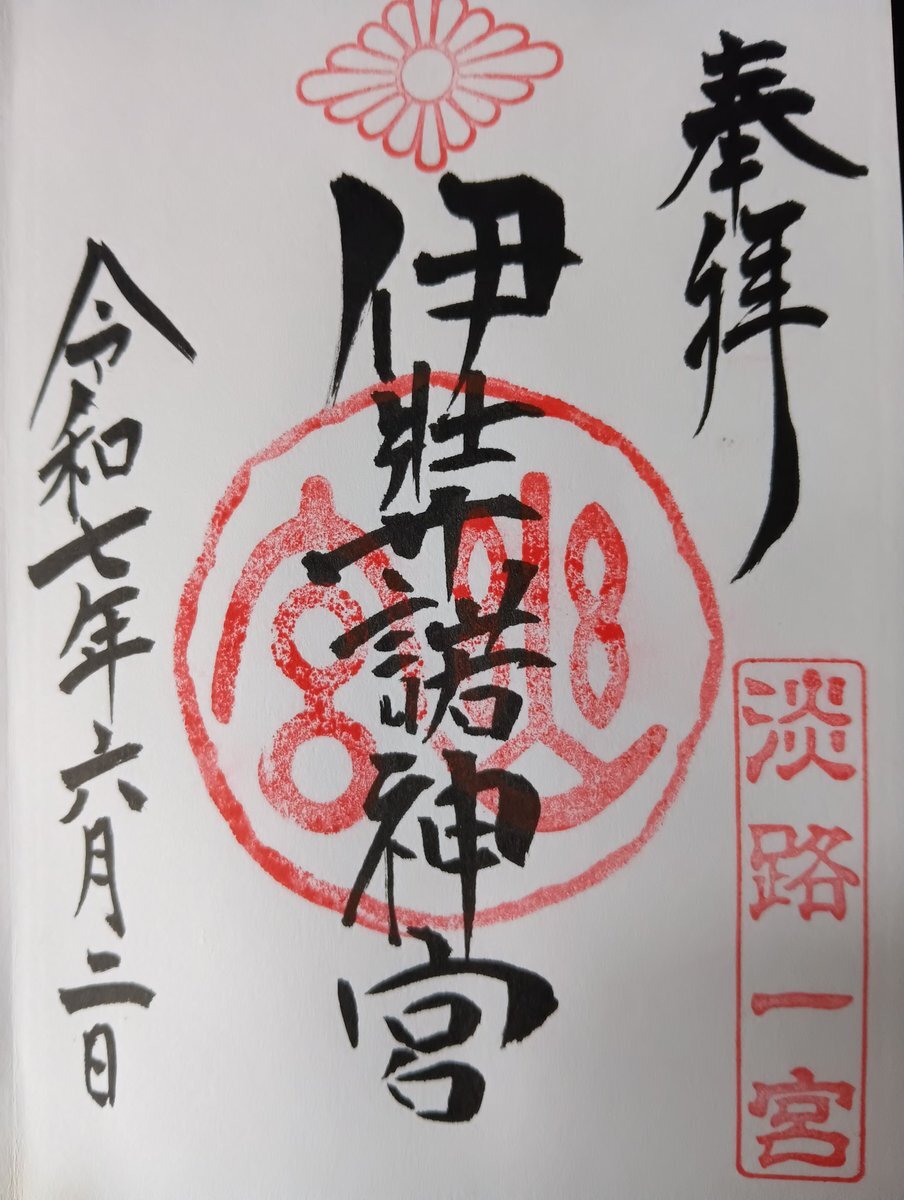 奉拝
淡路一宮
伊弉諾神宮
令和七年六月二日